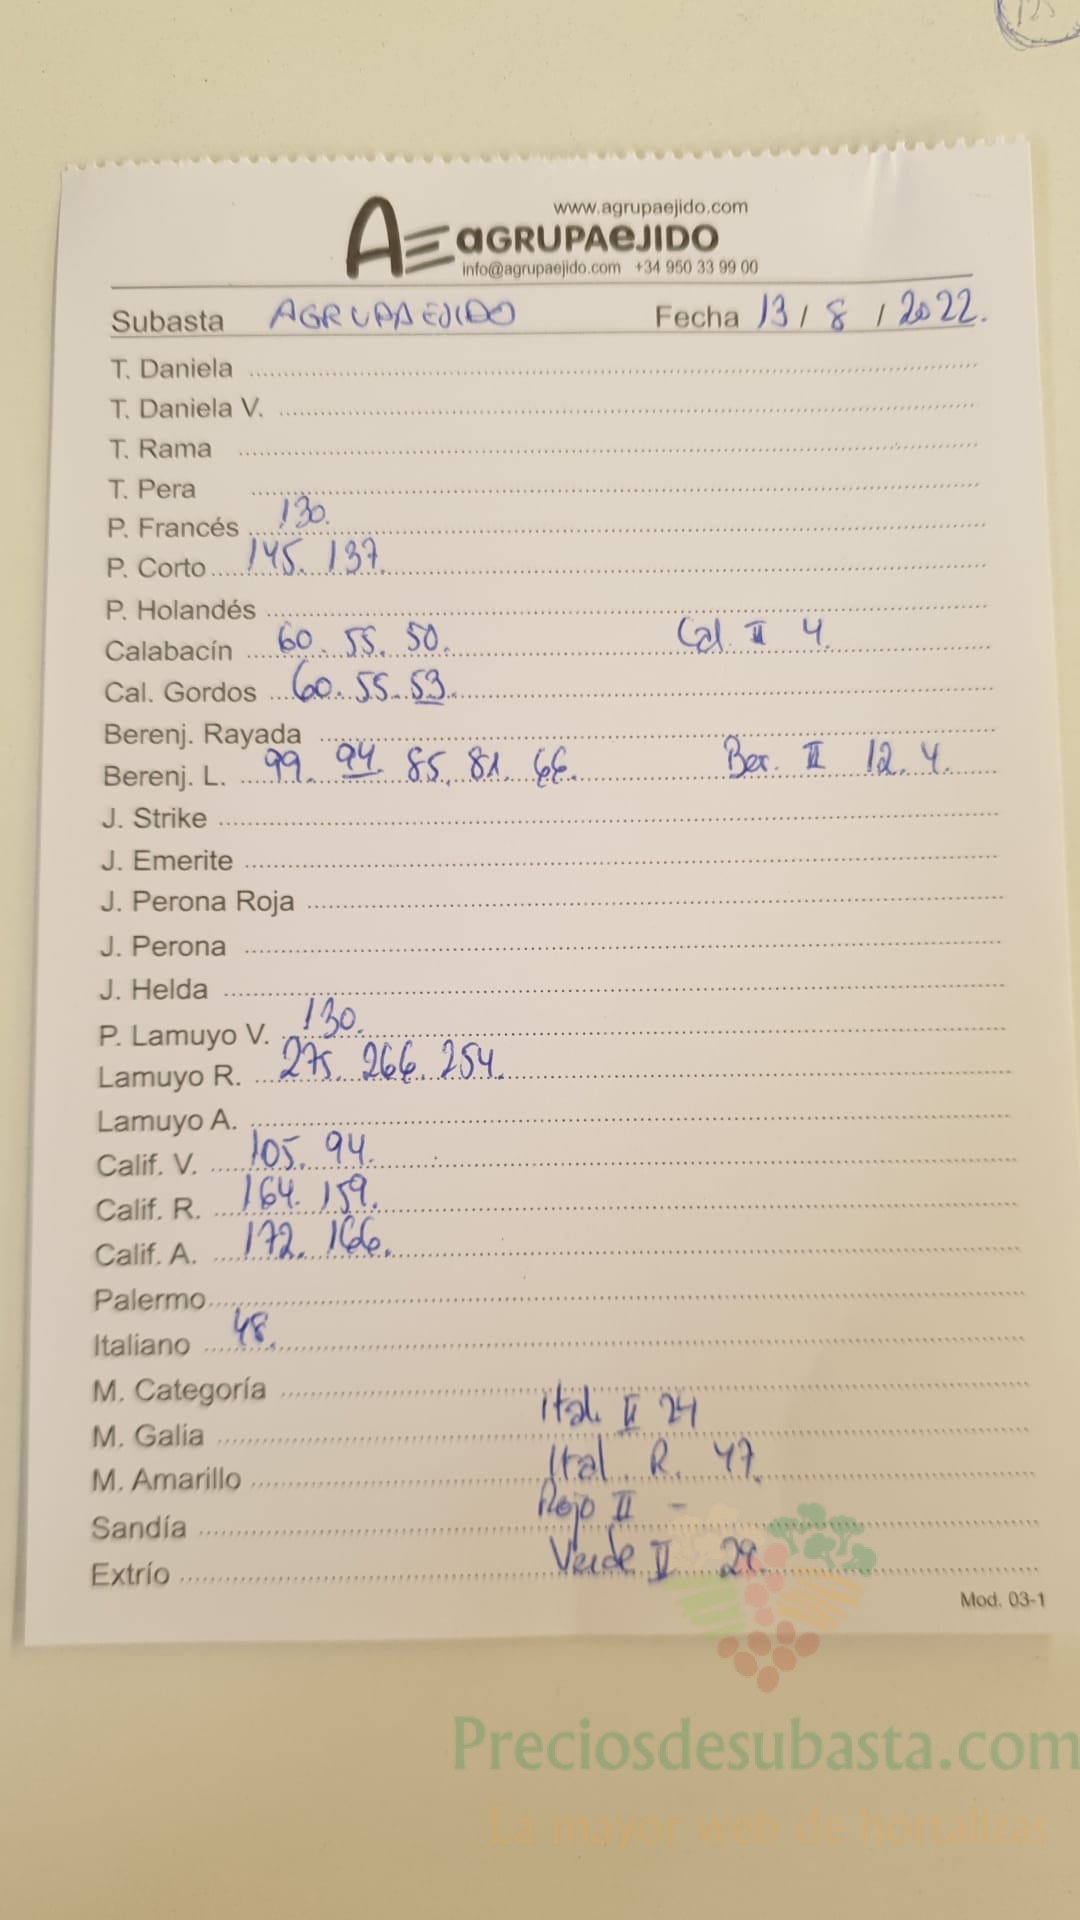 www.agrupaejido.com
AE aGRUPAeJIDO
info@agrupaejido.com +34 950 33 99 00
Subasta AGRUPAEJIDO Fecha 13 / 8 / 2022.
T. Daniela
T. Daniela V.
T. Rama
T. Pera
P. Francés 130.
P. Corto 145. 137.
P. Holandés
Calabacín 60. 55. 50. Cal. II 4.
Cal. Gordos 60. 55. 53.
Berenj. Rayada
Berenj. L. 99. 94. 85. 81. 66. Ber. II 12. 4.
J. Strike
J. Emerite
J. Perona Roja
J. Perona
J. Helda
P. Lamuyo V. 130.
Lamuyo R. 275. 266. 254.
Lamuyo A.
Calif. V. 105. 94.
Calif. R. 164. 159.
Calif. A. 172. 166.
Palermo
Italiano 48.
M. Categoría Ital. II 24
M. Galia
M. Amarillo Ital. R. 47.
Sandía Rojo II -
Extrío Verde II 29.
Mod. 03-1
Preciosdesubasta.com
La mayor web de hortalizas